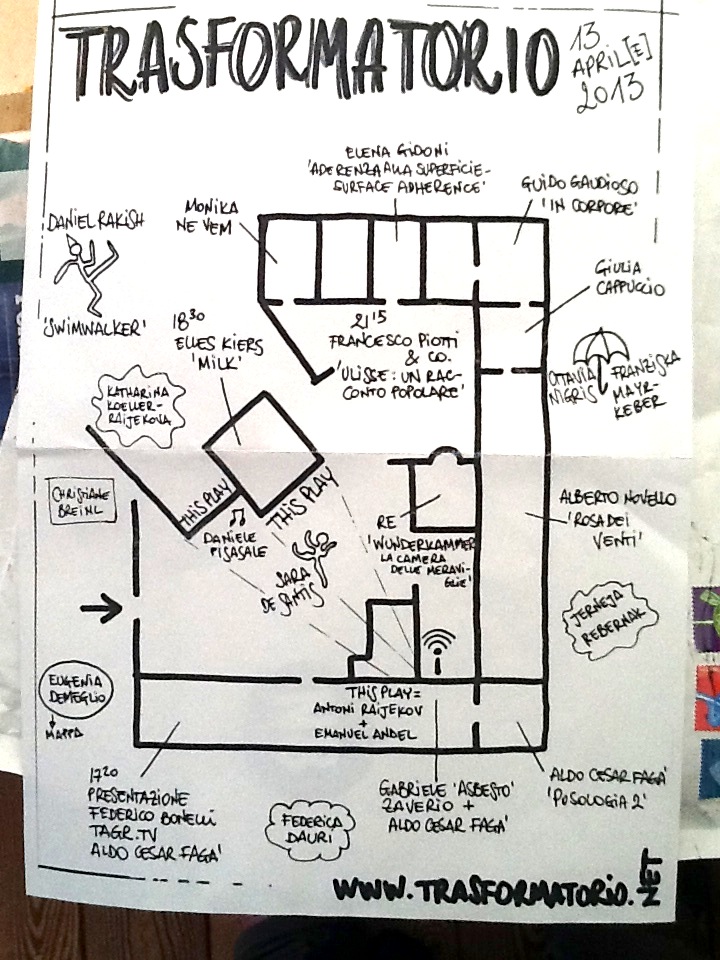 TRASFORMATORIO
13
APRIL[E]
2013
ELENA GIDONI
'ADERENZA ALLA SUPERFICIE-
SURFACE ADHERENCE'
GUIDO GAUDIOSO
'IN CORPORE'
MONIKA
NE VEM
DANIEL RAKISH
'SWIMWALKER'
GIULIA
CAPPUCCIO
18 30
ELLES KIERS
'MILK'
21 15
FRANCESCO PIOTTI
& CO.
'ULISSE: UN RAC-
CONTO POPOLARE'
OTTAVIA
NIGRIS
FRANZISKA
MAYR-
KEBER
KATHARINA
KOELLER-
RAIJEKOVA
CHRISTIANE
BREINL
THIS PLAY
THIS PLAY
DANIELE
PISASALE
SARA
DE SANTIS
RE
'WUNDERKAMMER
LA CAMERA
DELLE MERAVI-
GLIE'
ALBERTO NOVELLO
'ROSA DEI
VENTI'
JERNEJA
REBERNAK
EUGENIA
DEMEGLIO
MAPPA
THIS PLAY =
ANTONI RAIJEKOV
+
EMANUEL ANDEL
17 20
PRESENTAZIONE
FEDERICO BONELLI
TAGR.TV
ALDO CESAR FAGA'
FEDERICA
DAURI
GABRIELE 'ASBESTO'
ZAVERIO +
ALDO CESAR FAGA'
ALDO CESAR FAGA'
'POSOLOGIA 2'
WWW.TRASFORMATORIO.NET